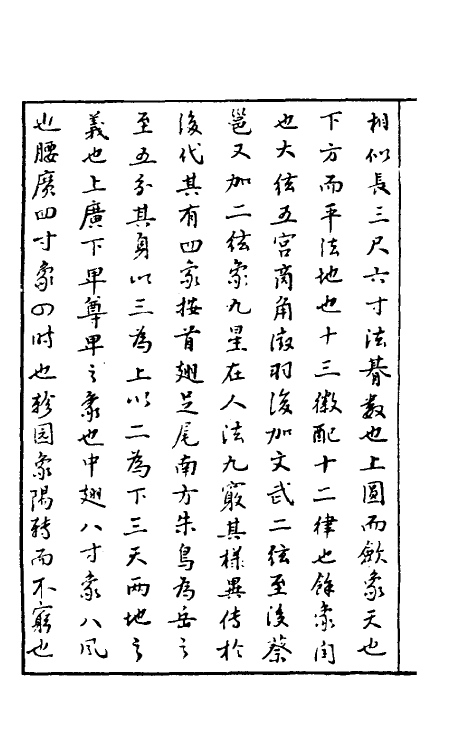 相似長三尺六寸法朞数也上圓而歛象天也
下方而平法地也十三徽配十二律也餘象閏
也大弦五宮商角徵羽後加文武二弦至後蔡
邕又加二弦象九星在人法九竅其様異传於
後代其有四象按首翅足尾南方朱鳥為岳之
至五分其身以三為上以二為下三天两地之
義也上廣下卑尊卑之象也中翅八寸象八风
也腰廣四寸象四时也軫园象陽转而不窮也